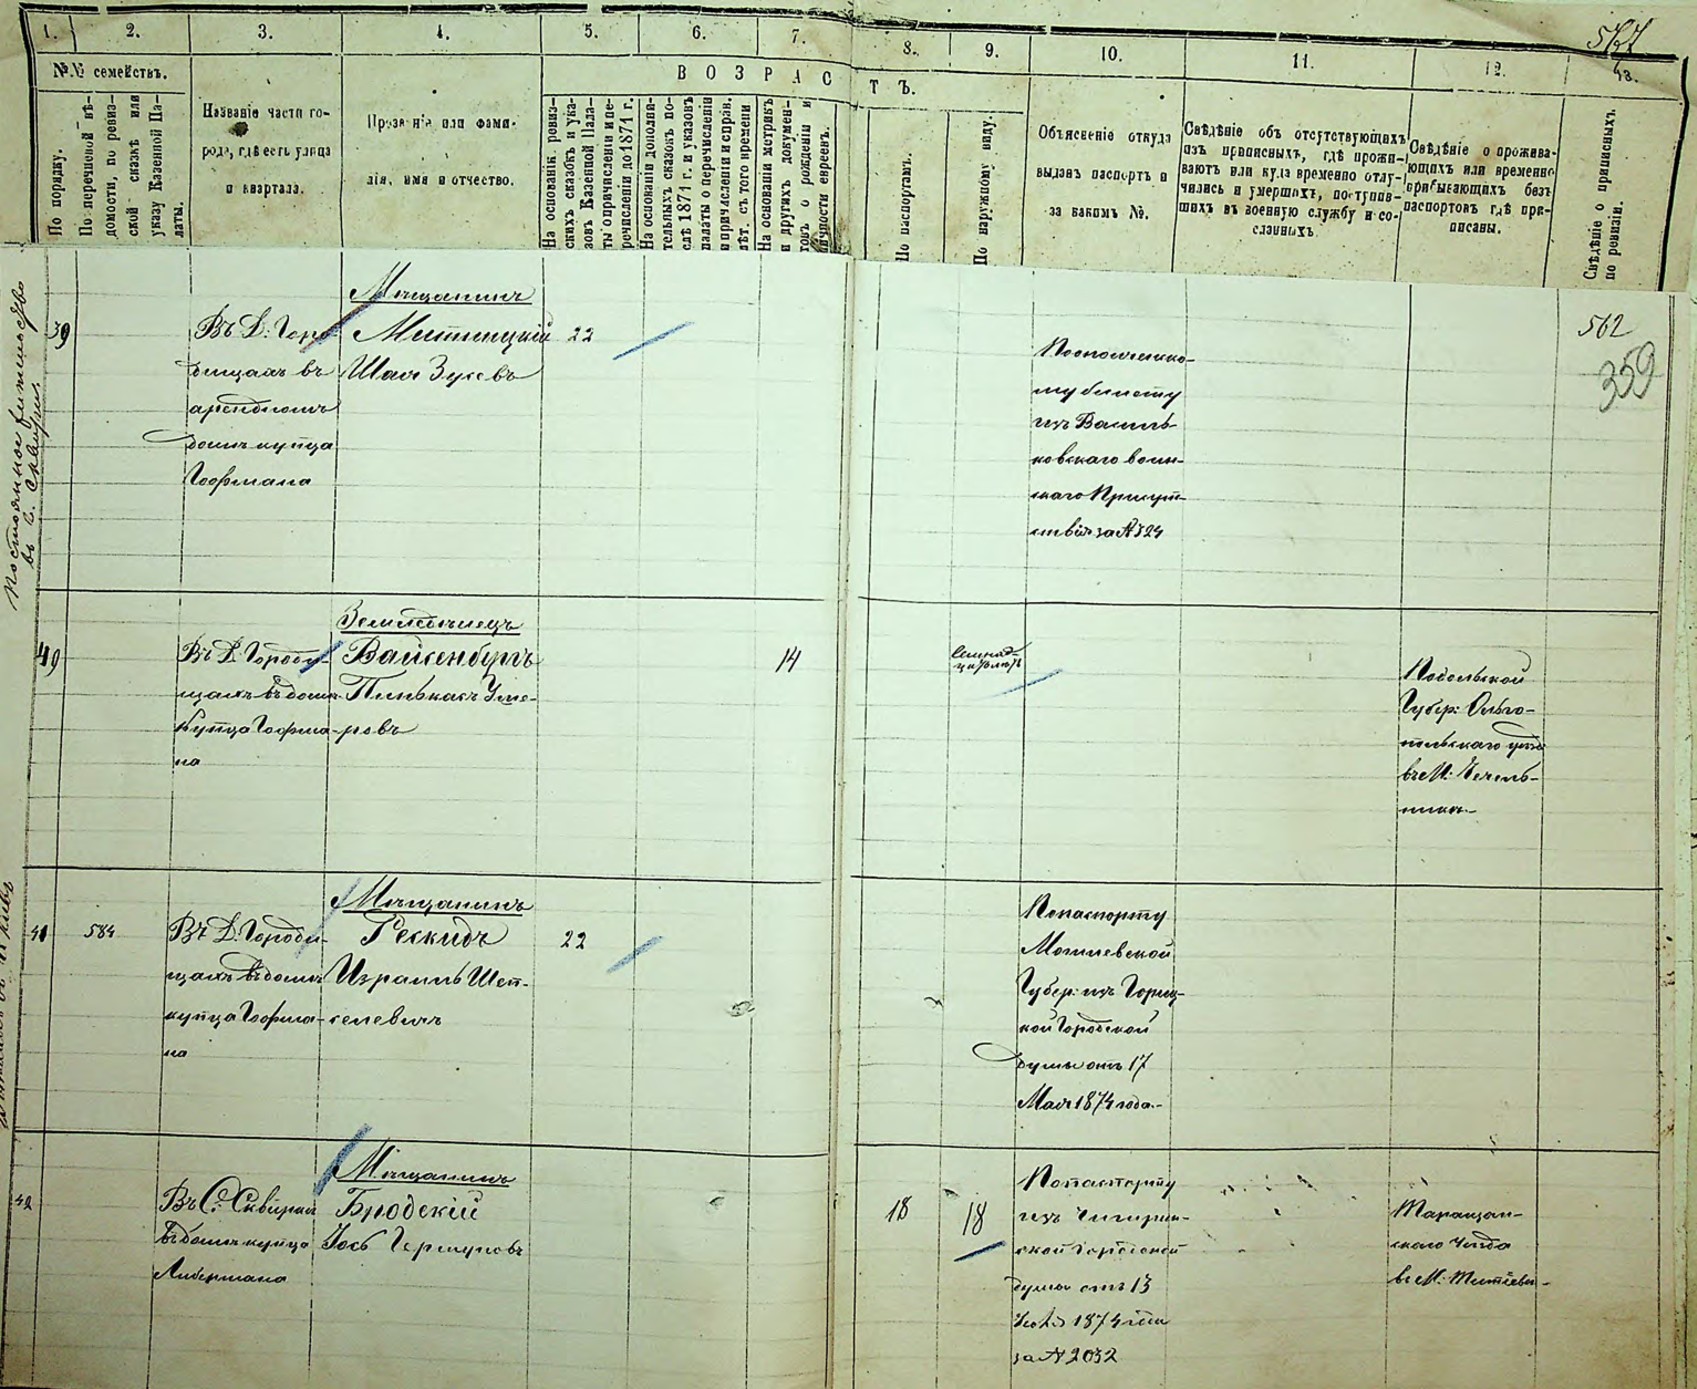 1. 2. 3. 4. 5. 6. 7. 8. 9. 10. 11. 12. 13.
№№ семействъ.
ВОЗРАСТЪ.
По порядку.
По перечневой вѣ-
домости, по ревиз-
ской сказкѣ или
указу Казенной Па-
латы.
Названіе части го-
рода, гдѣ есть улица
и квартала.
Прозваніе или фами-
лія, имя и отчество.
На основаніи ревиз-
скихъ сказокъ и ука-
зовъ Казенной Пала-
ты о причисленіи и пе-
речисленіи до 1871 г.
На основаніи дополни-
тельныхъ сказокъ по-
слѣ 1871 г. и указовъ
палаты о перечисленіи
и причисленіи и справ.
лѣт. съ того времени
На основаніи метрикъ
и другихъ докумен-
товъ о рожденіи и
личности евреевъ.
По паспортамъ.
По наружному виду.
Объясненіе откуда
выданъ паспортъ и
за какимъ №.
Свѣдѣніе объ отсутствующихъ
изъ приписныхъ, гдѣ прожи-
ваютъ или куда временно отлу-
чились и умершихъ, поступив-
шихъ въ военную службу и со-
сланныхъ.
Свѣдѣніе о прожива-
ющихъ или временно
прибывающихъ безъ
паспортовъ гдѣ при-
писаны.
Свѣдѣніе о приписныхъ
по ревизіи.
562
359
Постоянное
въ с. Сквирки
39
Въ Д: Горо-
дищахъ въ
арендномъ
домѣ купца
Гофмана
Мѣщанинъ
Шая Зусевъ
22
му билету
изъ Василь-
ковскаго воин-
скаго Присут-
ствія за № 324
Въ Д: Городи-
щахъ въ домѣ
Купца Гофма-
на
Земледѣлецъ
Вайсенбергъ
Пинькасъ Уше-
ровъ
14
Подольской
Губер: Ольго-
польскаго уѣзда
въ М: Чечель-
никѣ
41
584
Въ Д: Городи-
щахъ въ домѣ
купца Гофма-
на
Мѣщанинъ
Рескидъ
Израиль Шеп-
селевичъ
22
По паспорту
Могилевской
Губер: изъ Горец-
кой Городской
думы отъ 17
Мая 1874 года
42
Въ С: Сквирки
въ домѣ купца
Либермана
Мѣщанинъ
Бродскій
Іось Гершуновъ
18
18
По паспорту
изъ Чигирин-
ской Городской
думы отъ 13
1874 года
за № 2032
Таращан-
скаго Уѣзда
въ М: Тетіеви